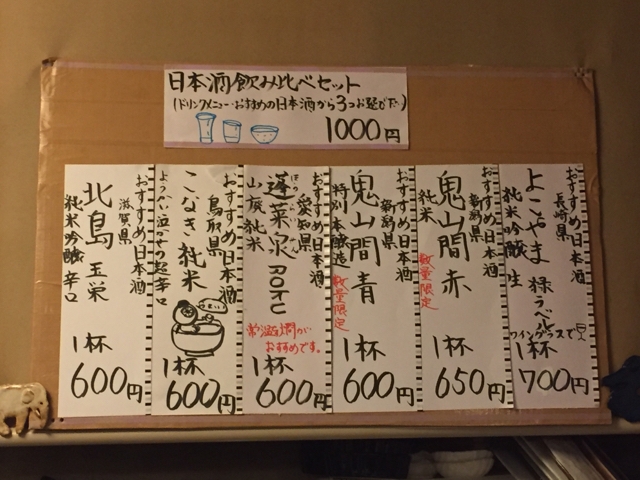 日本酒飲み比べセット
(ドリンクメニュー・おすすめの日本酒から3つお選び下さい)
1000円
おすすめ日本酒
長崎県
よこやま 緑ラベル
純米吟醸 生
ワイングラスで
1杯
700円
おすすめ日本酒
新潟県
鬼山間 赤
純米
数量限定
1杯
650円
おすすめ日本酒
新潟県
鬼山間 青
特別本醸造
数量限定
1杯
600円
おすすめ日本酒
愛知県
ほうらいせん
蓬莱泉 ROKU
山廃 純米
常温or燗が
おすすめです。
1杯
600円
おすすめ日本酒
鳥取県
こなき純米
ようかい泣かせの超辛口
1杯
600円
おすすめ日本酒
滋賀県
北島 玉栄
純米吟醸 辛口
1杯
600円